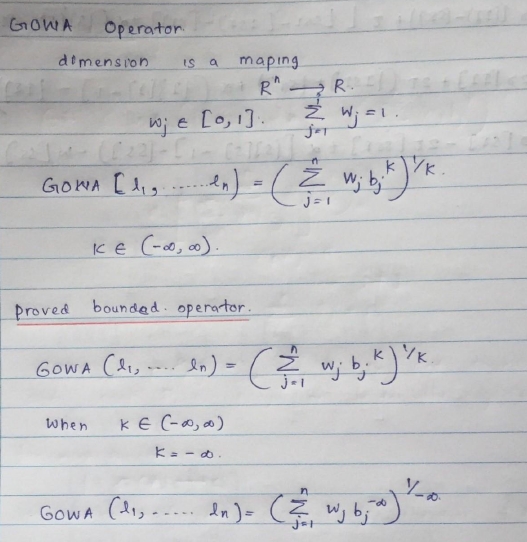 GOWA Operator.
dimension is a maping
Rⁿ → R.
wj ∈ [0,1]. Σ_{j=1} wj = 1.
GOWA [l1, ......ln) = ( Σ_{j=1}^{n} wj bj^K )^{1/K}.
K ∈ (-∞, ∞).
proved bounded. operator.
GOWA (l1, .... ln) = ( Σ_{j=1}^{n} wj bj^K )^{1/K}.
When K ∈ (-∞, ∞)
K = - ∞.
GOWA (l1, ..... ln) = ( Σ_{j=1}^{n} wj bj^{-∞} )^{1/-∞}.